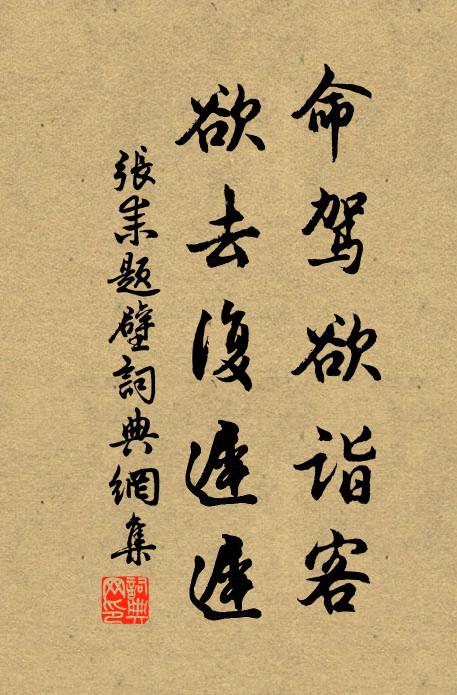 命駕欲詣客
欲去復遲遲
張耒題壁詞典網集
詞典
網印